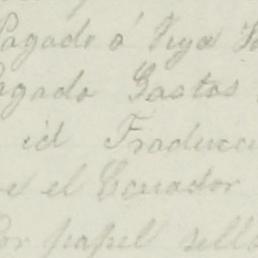 Pagado á
Pagado Gastos
id Traducci
el Ecuador
Por papel sella